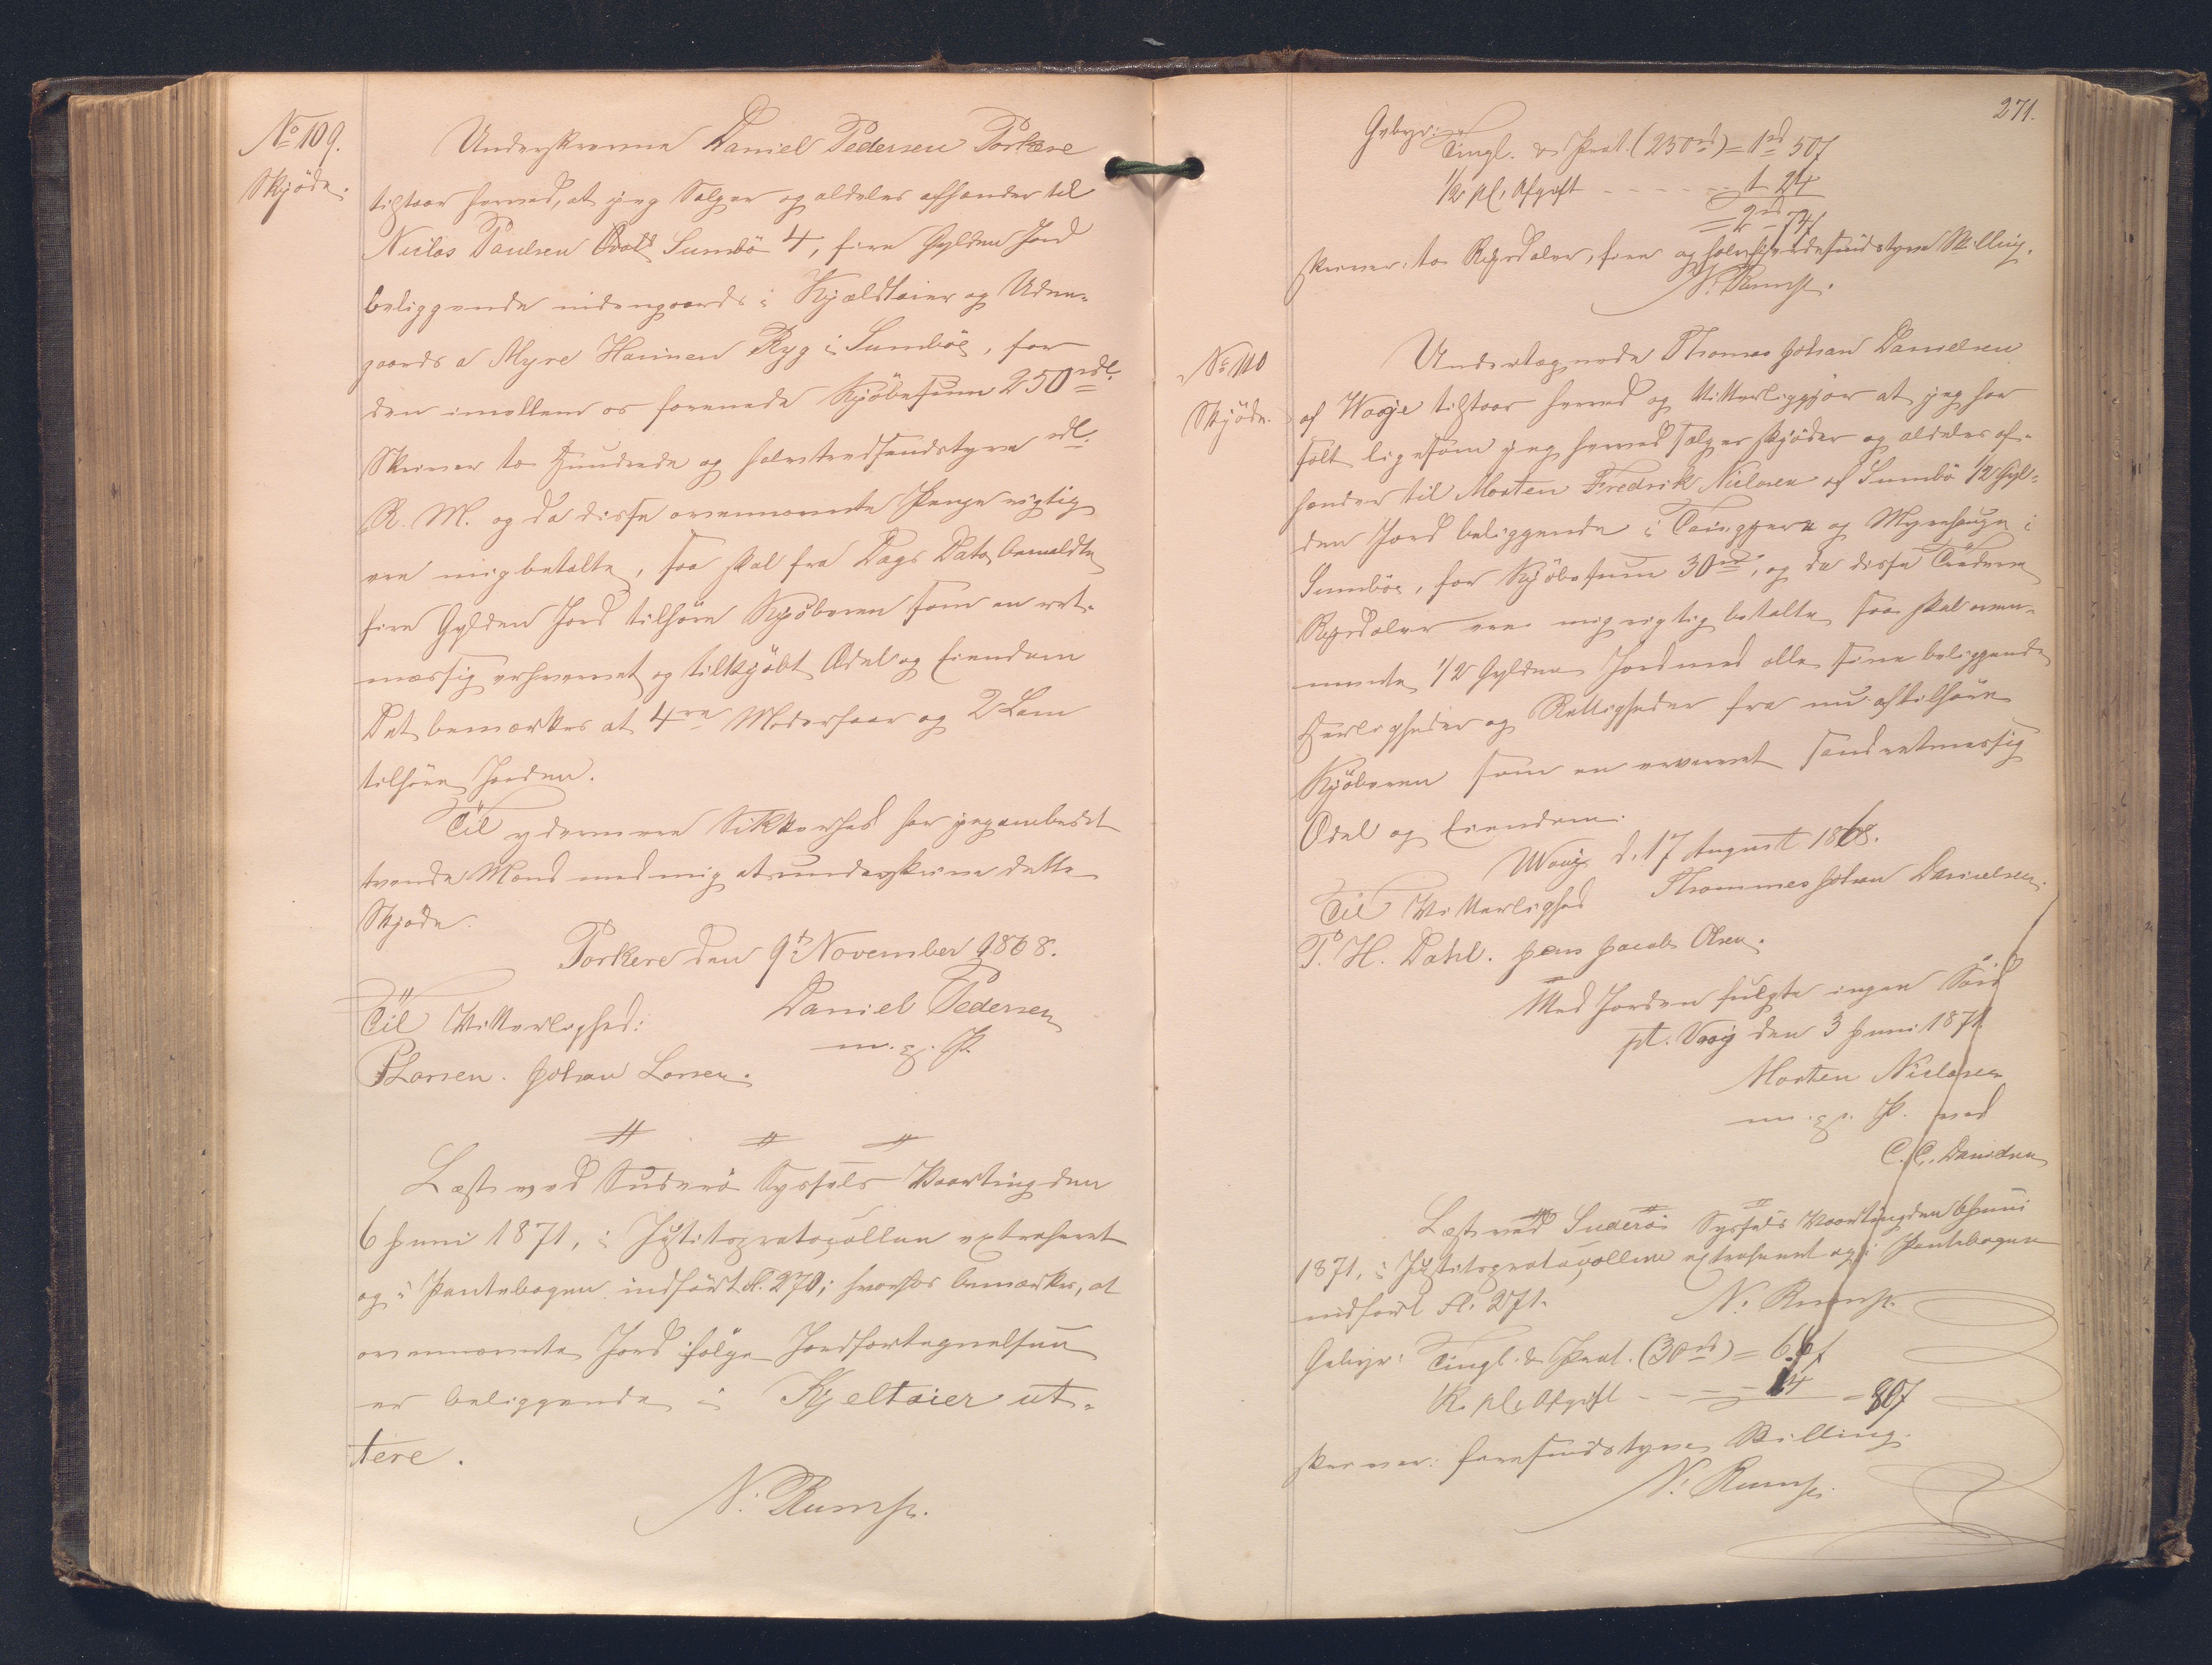 No 109.
Skjöde.
Underskrevne Daniel Pedersen Porkere
tilstaar herved, at jeg Sælger og aldeles afhænder til
Niclas Paulsen Sumbö 4, fire Gylden Jord
beliggende indengaards i Kjældtaier og Uden-
gaards a Myre Haimen Ryg i Sumböe, for
den imellem os forenede Kjöbesum 250 rdl.
Skriver to Hundrede og halvtredsindstyve rdl.
R. M. og da disse ovennævnte Penge rigtig
ere mig betalte, saa skal fra Dags Dato bemeldte
fire Gylden Jord tilhöre Kjöberen som en ret-
mæssig erhvervet og tilkjöbt Odel og Eiendom
Det bemærkes at 4re Moderfaar og 2 Lam
tilhöre Jorden.
Til ydermere Sikkerhed har jeg ombedet
tvende Mænd med mig at underskrive dette
Skjöde.
Porkere den 9d November 1868.
Til Vitterlighed: Daniel Pedersen
m. p. P.
PLarsen. Johan Larsen.
Læst ved Suderö Syssels Vaarting den
6 Juni 1871, i Justitsprotocollen extraheret
og i Pantebogen indført fl. 270; hvorhos bemærkes, at
ovennævnte Jord ifölge Jordfortegnelsen
er beliggende i Kjeltaier ut-
tere.
N. Rump.
271.
Gebyr: Tingl. & Prot. (250 rd) = 1 rd 50 f
1/2 pCt. Afgift - - - - - 1 24
= 2 rd 74 f
skriver: to Rigsdaler, fire og halvfjerdesindstyve Skilling.
N. Rump.
No 110
Skjöde.
Undertegnede Thomas Johan Danielsen
af Waaje tilstaar herved og Vitterliggjör at jeg har
sölt ligesom jeg herved sælger skjöder og aldeles af-
hænder til Morten Fredrik Niclasen af Sumbö 1/2 Gyl-
den Jord beliggende i og Myrehauge i
Sumböe, for Kjöbesum 30 rd, og da disse Trædeve
Rigsdaler ere mig rigtig betalte saa skal oven-
nævnte 1/2 Gylden Jord med alle sine beliggende
Herligheder og Rettigheder fra nu af tilhöre
Kjöberen som en erværvet sand retmæssig
Odel og Eiendom.
Waaj d. 17 August 1868.
Til Vitterlighed Thommes Johan Danielsen.
P. H. Dahl. Jens Jacob Olsen.
Med Jorden fulgte ingen Söid
pt. Vaaj den 3 Juni 1871
Morten Niclasen
m. p. P. ved
C. C. Danielsen
Læst ved Suderöi Syssels Vaarting den 6 Juni
1871, i Justitsprotocollene extraheret og i Pantebogen
indført fl. 271.
N. Rump.
Gebyr: Tingl. & Prot. (30 rd) = 66 f
1/2 pCt. Afgift - - - - 14 = 80 f
skriver: firesindstyve Skilling.
N. Rump.